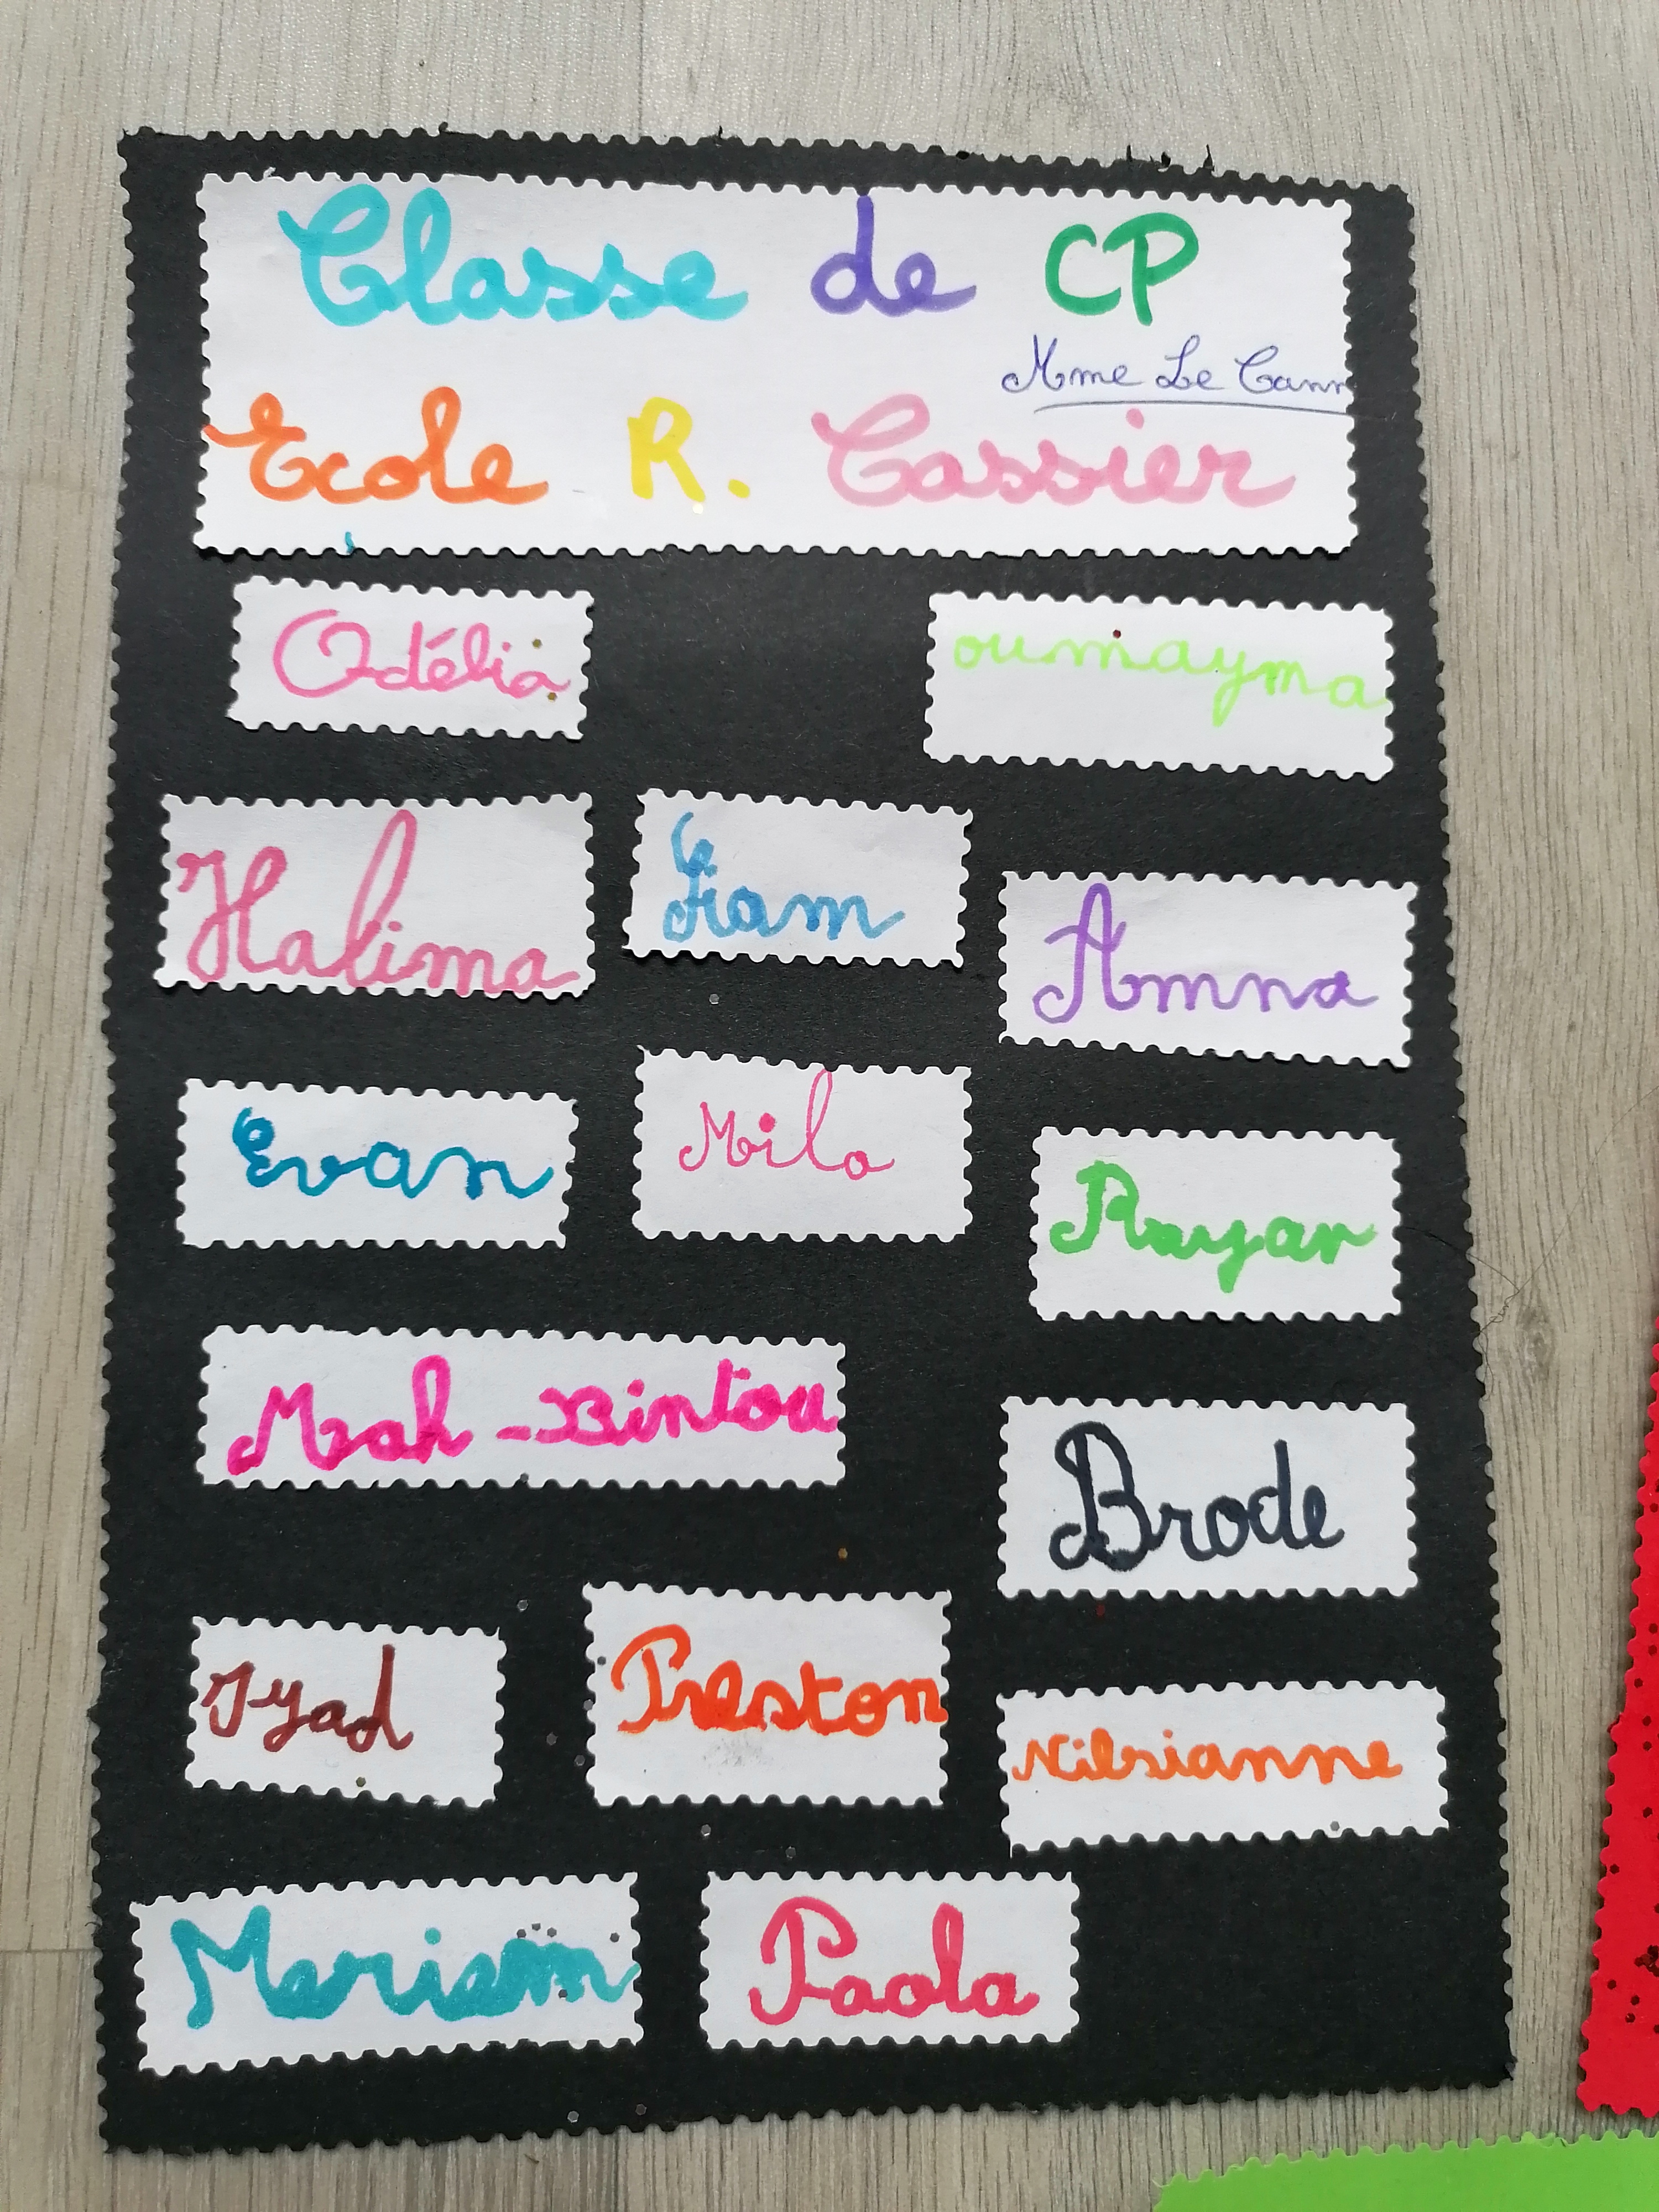 Classe de CP
Mme Le Cann
Ecole R. Cassier
Odélia
oumayma
Halima
Amna
Evan
Milo
Rayan
Mah-Bintou
Brode
Iyad
Preston
Mariam
Paola